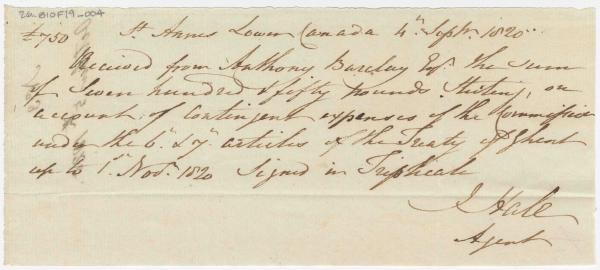 2a-B10F19-004
£750 St Annes Lower Canada 4th Septr. 1820.
Received from Anthony Barclay Esqr. the sum
of Seven hundred & fifty pounds Sterling, on
account of Contingent expenses of the Commission
under the 6th & 7th articles of the Treaty of Ghent
up to 1st Novr. 1820 Signed in Triplicate
J Hale
Agent